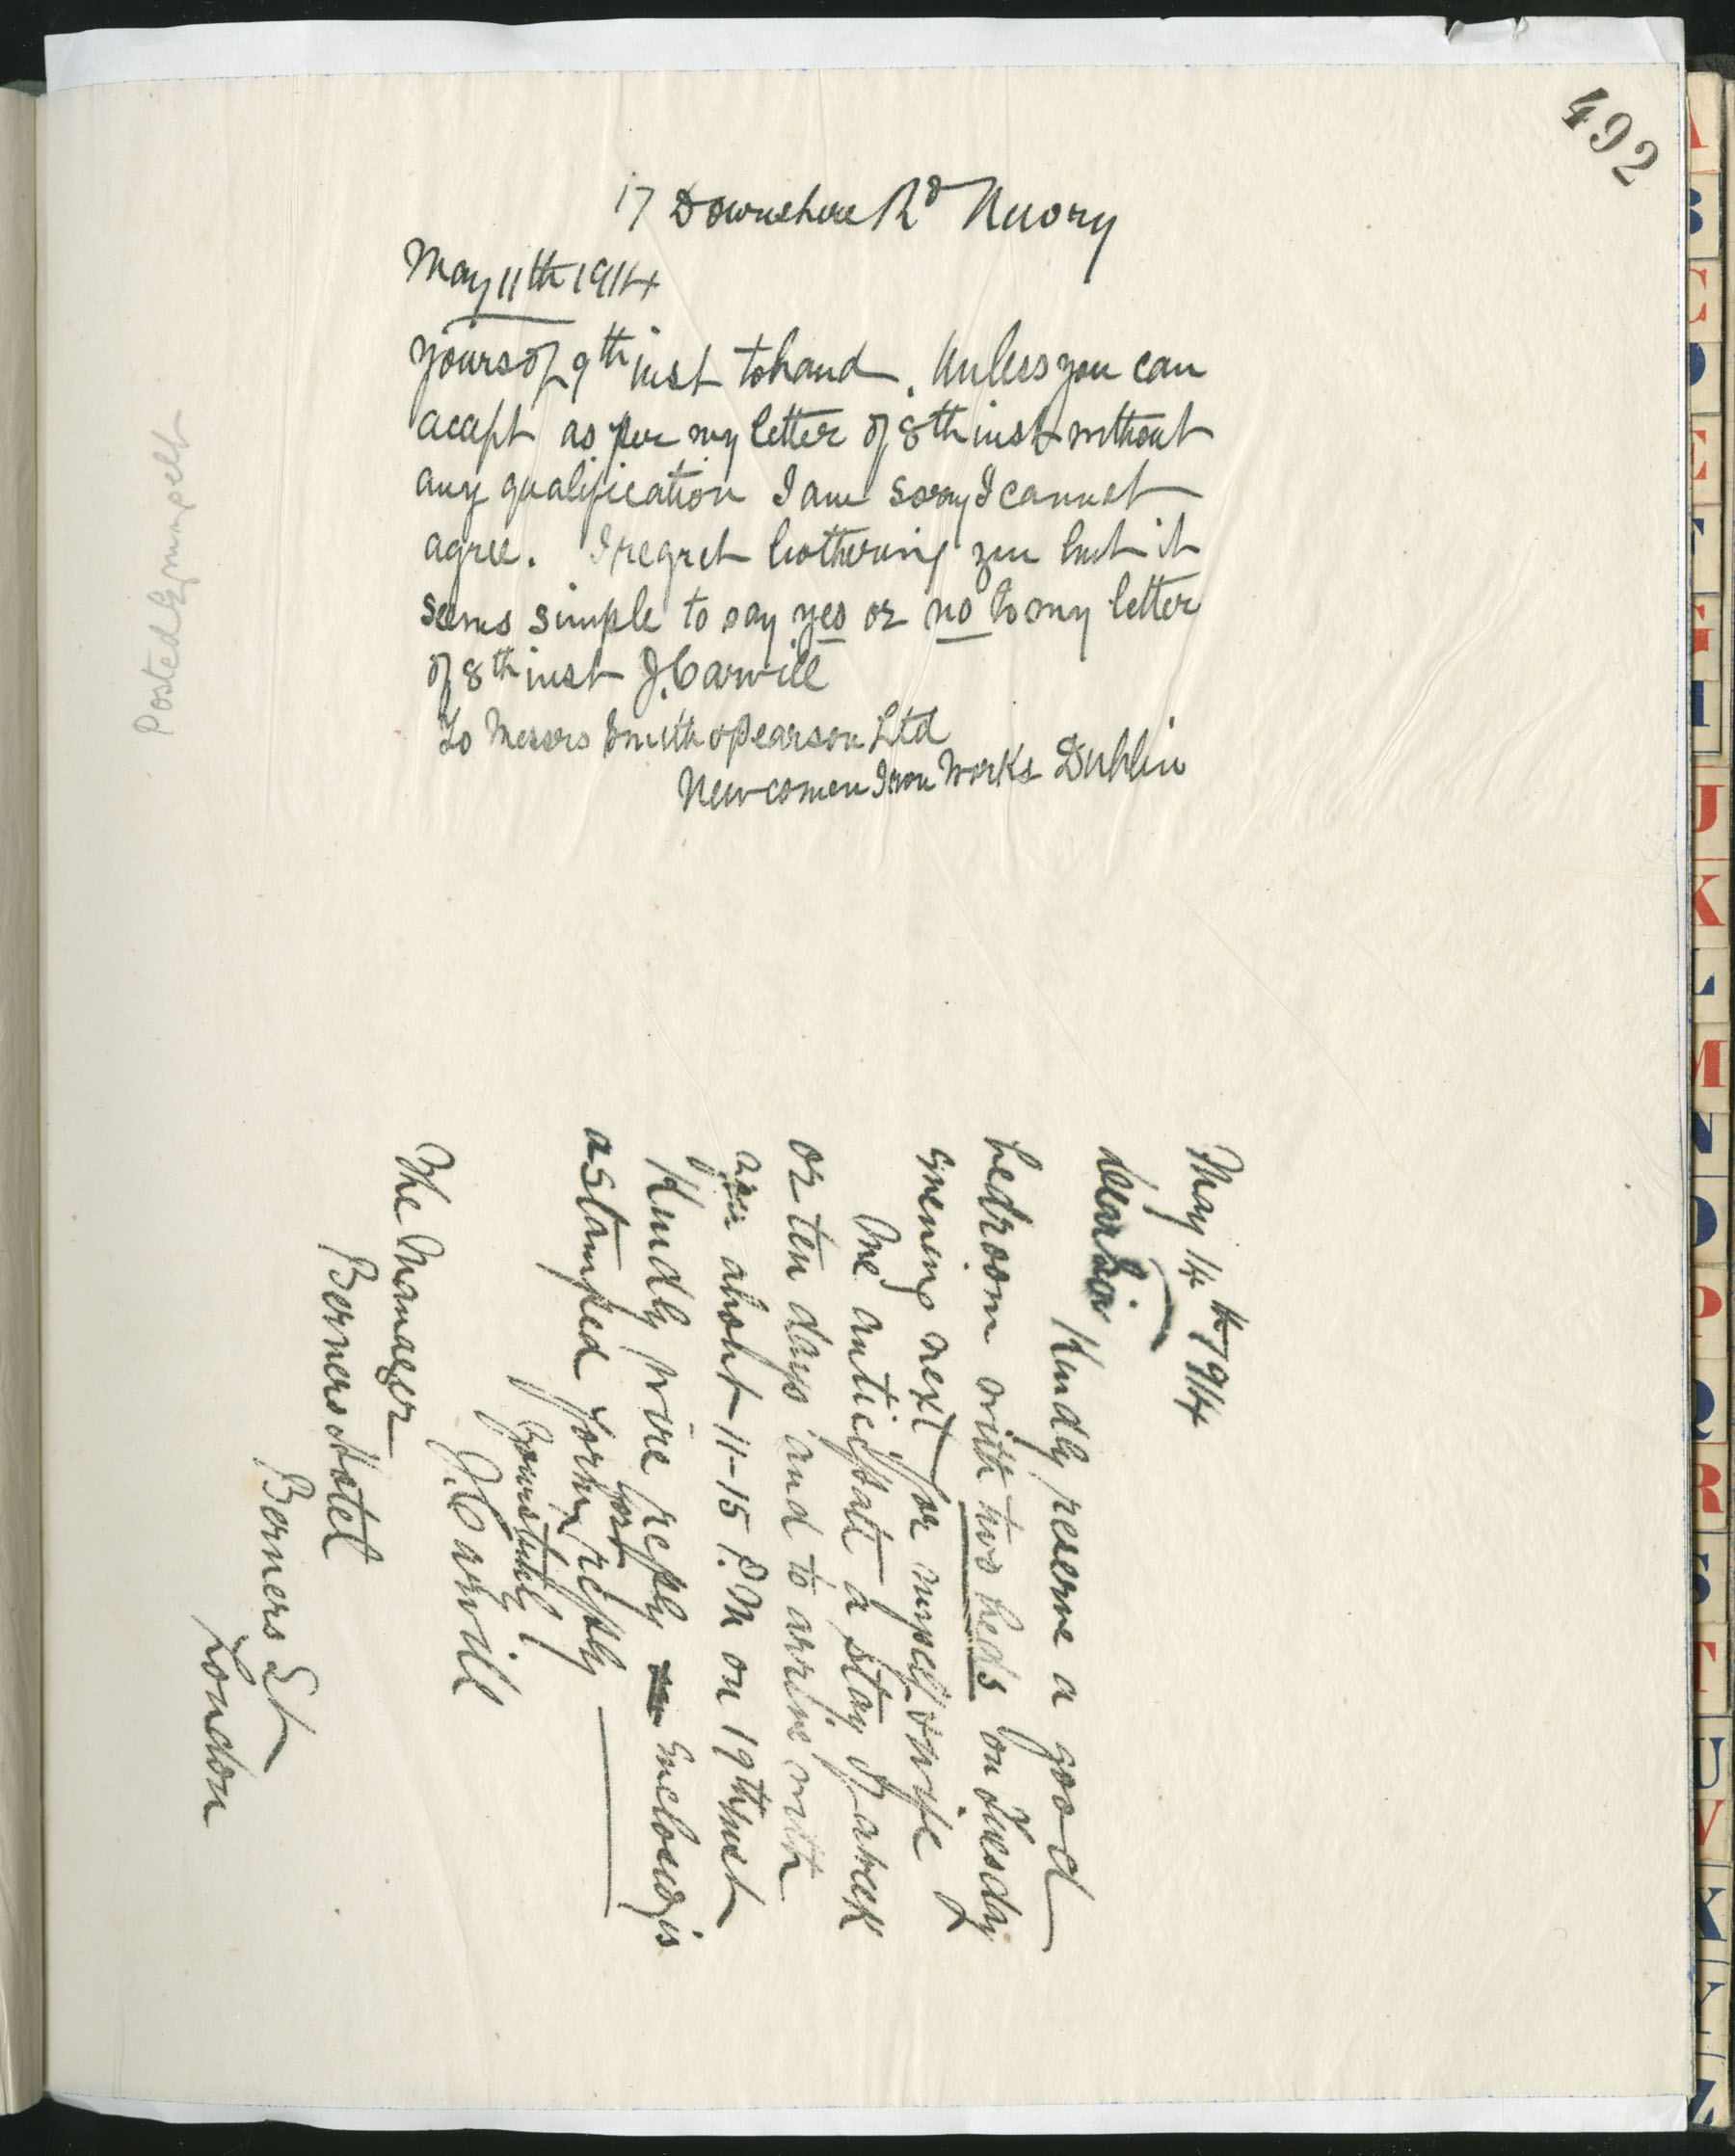 492
17 Downshire Rd Newry
May 11th 1914
Yours of 9th inst to hand. Unless you can
accept as per my letter of 8th inst without
any qualification I am sorry I cannot
agree. I regret bothering you but it
seems simple to say yes or no to my letter
of 8th inst J. Carvill
To Messrs Smith & Pearson Ltd
Newcomen Iron Works Dublin
Posted by myself
May 14th 1914
Dear Sir
Kindly reserve a good
bedroom with two beds on Tuesday
evening next for myself & wife
We anticipate a stay of a week
or ten days and to arrive with
you about 11-15 P.M on 19th inst
Kindly wire reply Enclosed is
a stamped form for reply
Yours truly
J. Carvill
The Manager
Berners Hotel
Berners St
London